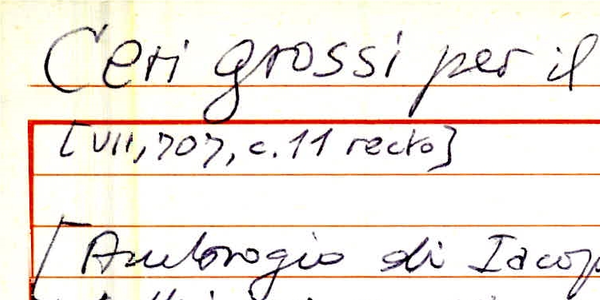 Ceri grossi per il
[VII, 707, c. 11 recto]
[Ambrogio di Iacop